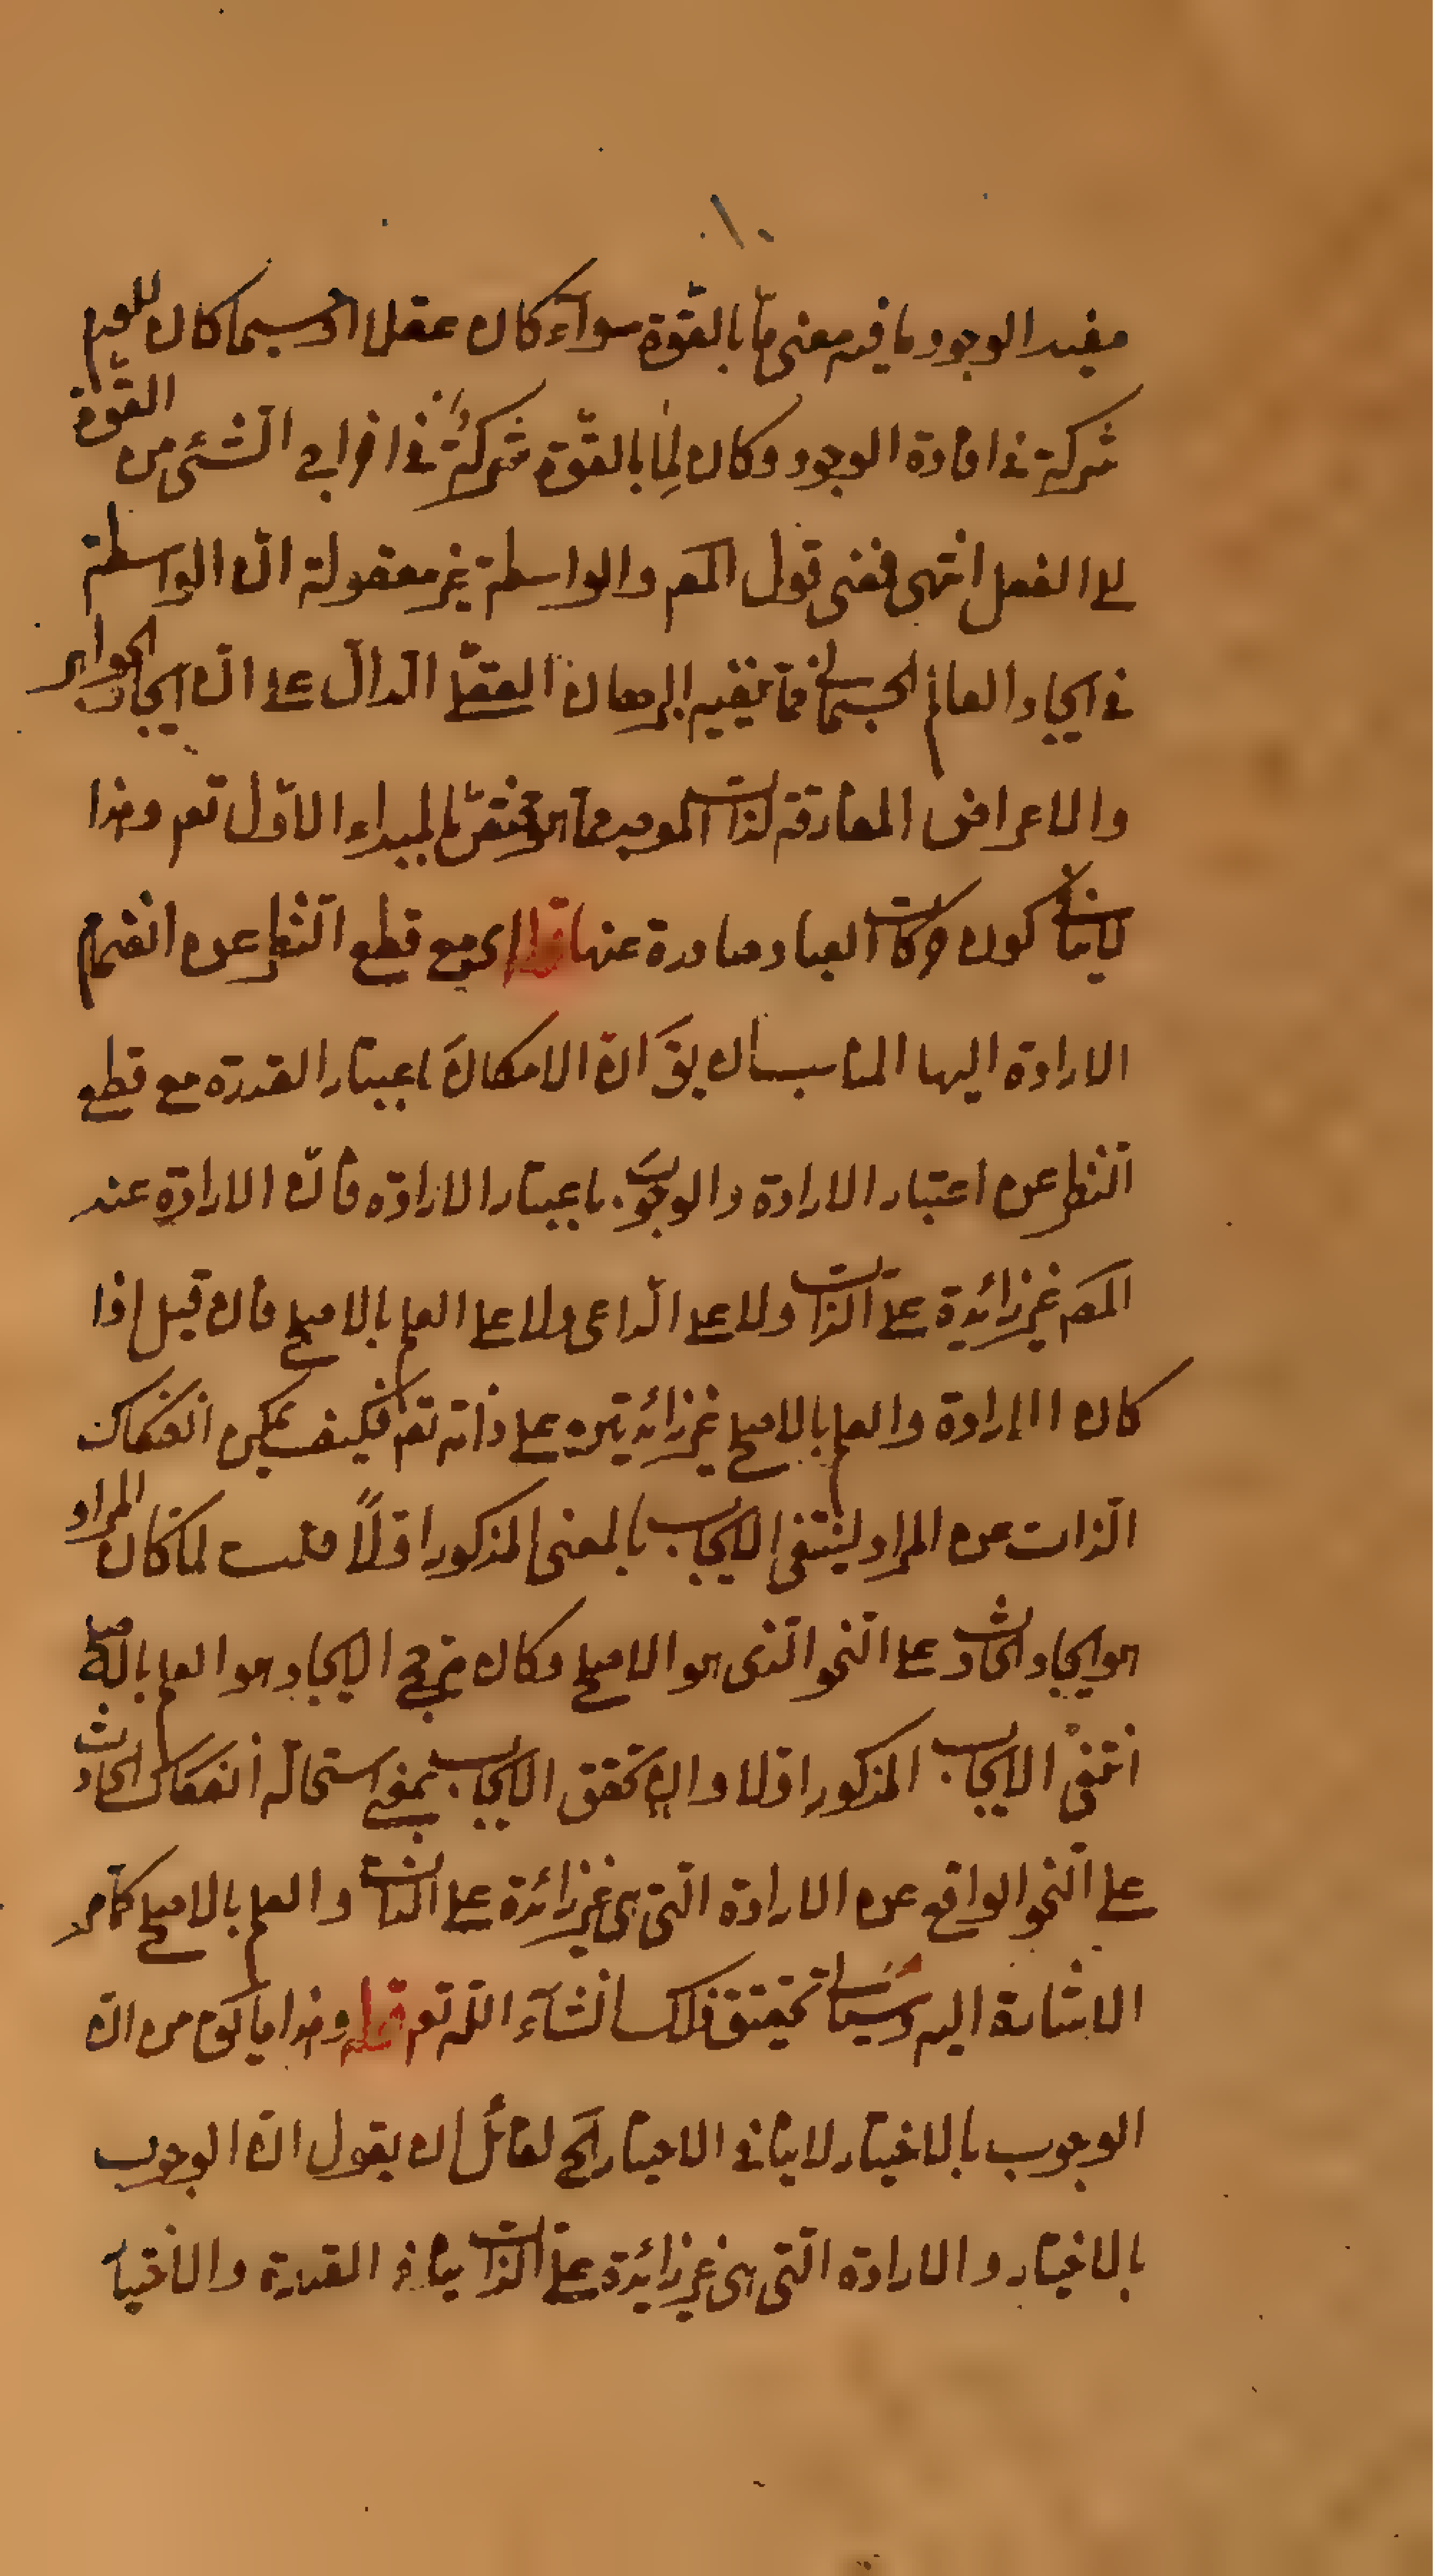 مفيد الوجود ما فيه معنى ما بالقوّة سوآء كان عقلا او جسما كان للعدم
شركة فى افادة الوجود وكان لِما بالقوّة شركةٌ فى اخراج الشئ من القوّة
الى الفعل انتهى فمعنى قول المصم والواسطة غير معقولة انّ الواسطة
فى ايجاد العالم الجسمانى ممّا ينفيه البرهان العقلى الدالّ على انّ ايجاد الجواهر
والاعراض المفارقة لذات الموجد ممّا هو مختصّ بالمبداء الاوّل تعم وهذا
لاينافى كون حركات العباد صادرة عنها قوله اى مع قطع النّظر عن انضمام
الارادة اليها المناسب ان يقَ انّ الامكان باعتبار القدرة مع قطع
النّظر عن اعتبار الارادة والوجوب باعتبار الارادة فانّ الارادة عند
المصم غير زائدة على الذات ولا على الدّاعى ولا على العلم بالاصلح فان قيل اذا
كان الارادة والعلم بالاصلح غير زائدتين على ذاته تعم فكيف يمكن انفكاك
الذات عن المراد لينتفى الايجاب بالمعنى المذكور اوّلاً قلت لما كان المراد
هو ايجاد الحادث على النّحو الّذى هو الاصلح وكان مرجح الايجاد هو العلم بالاصلح
انتفى الايجاب المذكور اولا وان تحقق الايجاب بمعنى استحالة انفكاك الحادث
على النّحو الواقع عن الارادة الّتى هى غير زائدة على الذات والعلم بالاصلح كما مر
الاشارة اليه وسيأتى تحقيق ذلك انشآء اللّه تعم قوله وهذا ما يكون من انّ
الوجوب بالاختيار لا ينافى الاختيار الخ لقائل ان يقول انّ الوجوب
بالاختيار والارادة الّتى هى غير زائدة على الذات ينافى القدرة والاختيا